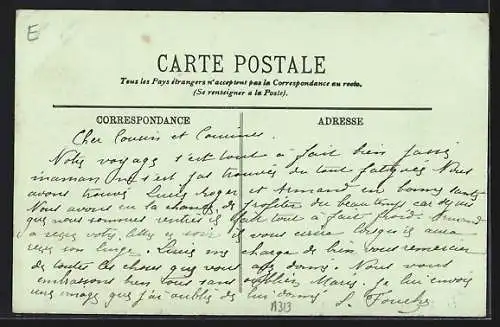 E
CARTE POSTALE
Tous les Pays étrangers n'acceptent pas la Correspondance au recto.
(Se renseigner a la Poste).
CORRESPONDANCE
ADRESSE
Cher Cousin et Cousines.
Notre voyage s'est tout à fait bien passé
maman ne s'est pas trouvée du tout fatiguée Nous
avons trouvé Roger et Armand en bonne santé
Nous avons eu la chance de profiter du beau temps car depuis
que nous sommes rentrés il fait tout à fait froid. Armand
a reçu votre ce soir il vous lorsqu'il aura
reçu son linge. me charge de bien vous remercier
de toutes les choses que vous avez . Nous vous
embrassons bien tous sans oublier Je lui envoie
une image que j'ai oublié de lui donner
A313